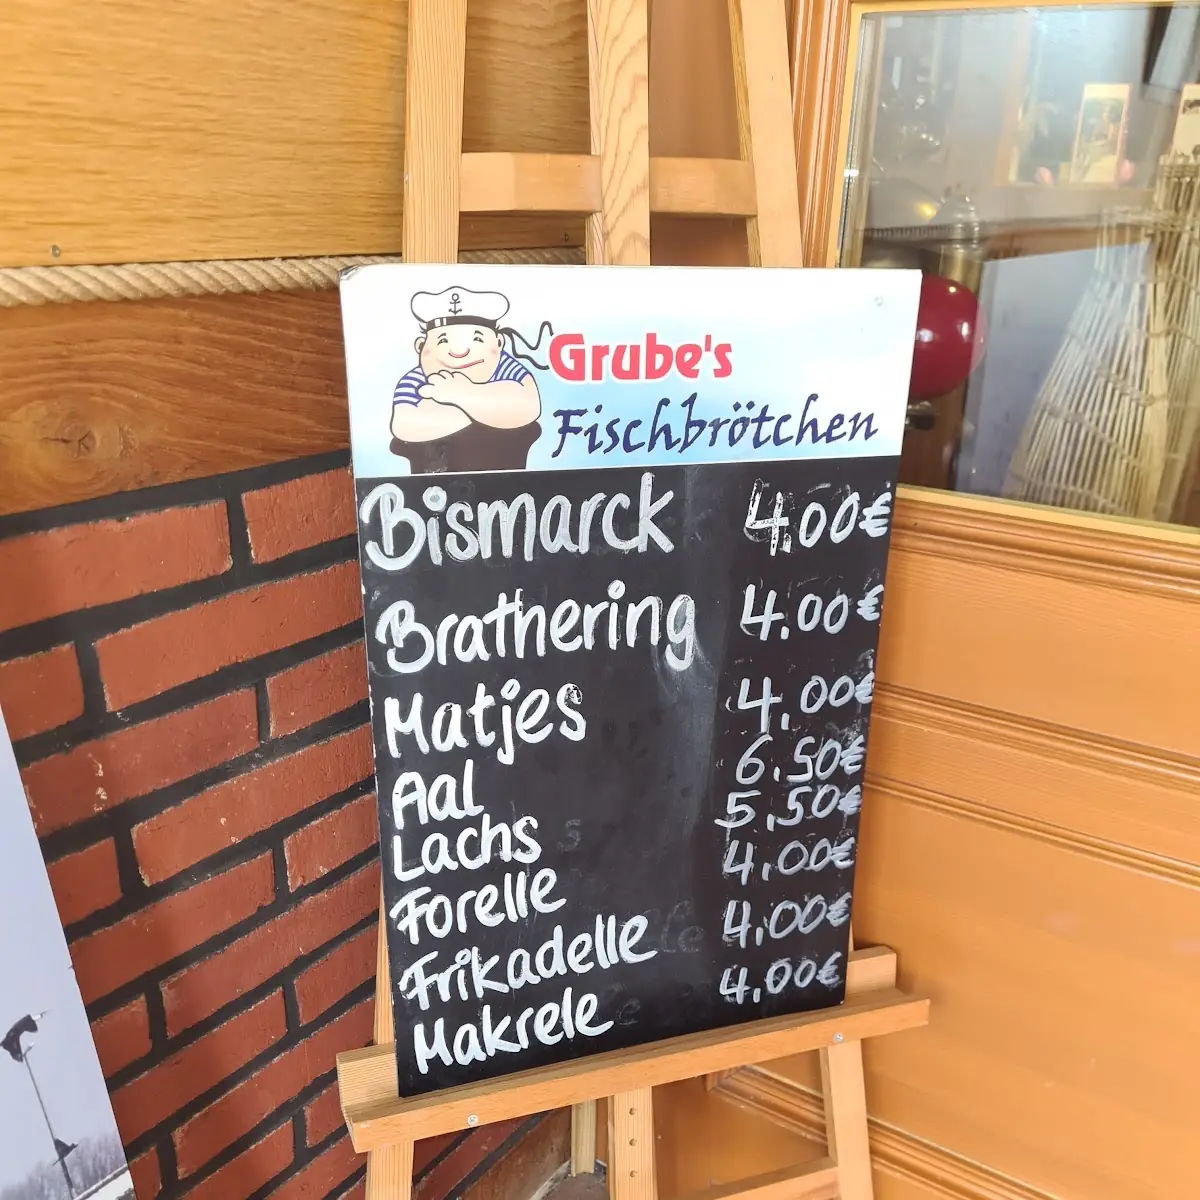 Grube's
Fischbrötchen
Bismarck 4.00€
Brathering 4.00€
Matjes 4.00€
Aal 6.50€
Lachs 5.50€
Forelle 4.00€
Frikadelle 4.00€
Makrele 4.00€